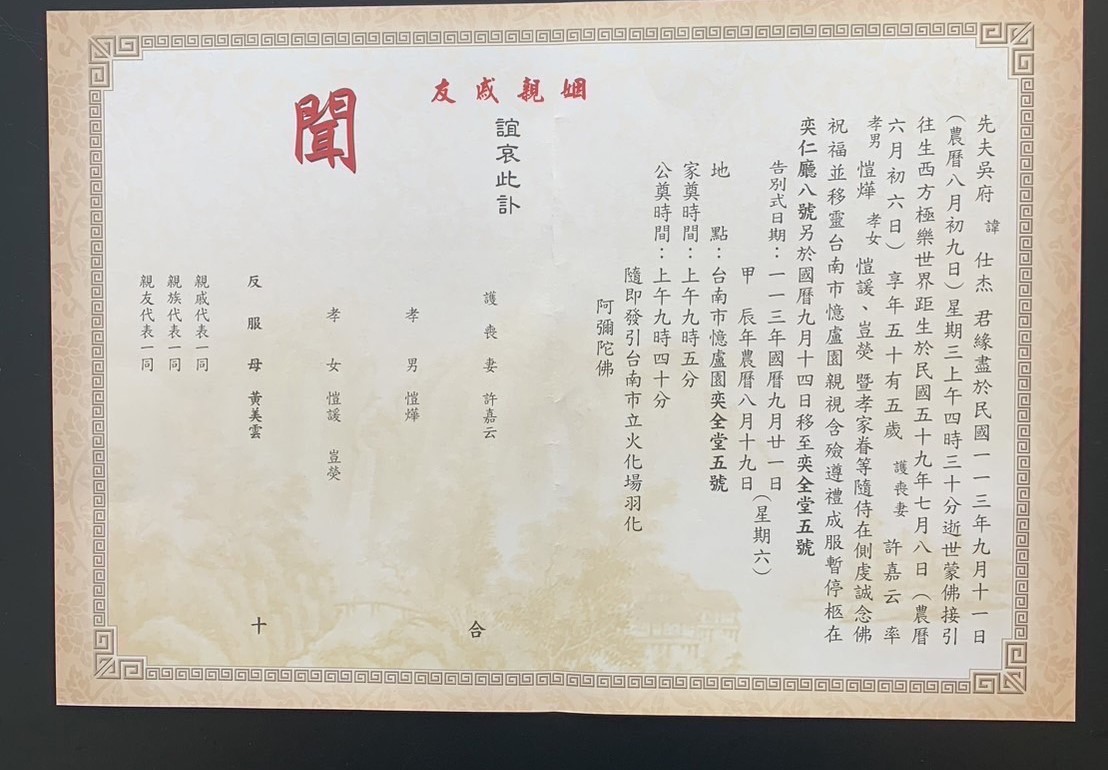 先夫吳府 諱 仕杰 君緣盡於民國一一三年九月十一日
（農曆八月初九日）星期三上午四時三十分逝世蒙佛接引
往生西方極樂世界距生於民國五十九年七月八日（農曆
六月初六日）享年五十有五歲 護喪妻 許嘉云 率
孝男 愷燁 孝女 愷諼、豈熒 暨孝家眷等隨侍在側虔誠念佛
祝福並移靈台南市憶盧園親視含殮遵禮成服暫停柩在
奕仁廳八號另於國曆九月十四日移至奕全堂五號
告別式日期：一一三年國曆九月廿一日
甲 辰年農曆八月十九日
（星期六）
地 點：台南市憶盧園奕全堂五號
家奠時間：上午九時五分
公奠時間：上午九時四十分
隨即發引台南市立火化場羽化
阿彌陀佛
誼哀此訃
姻親戚友
聞
護喪妻 許嘉云
孝男 愷燁
孝女 愷諼 豈熒
反服母 黃美雲
親戚代表一同
親族代表一同
親友代表一同
合
十